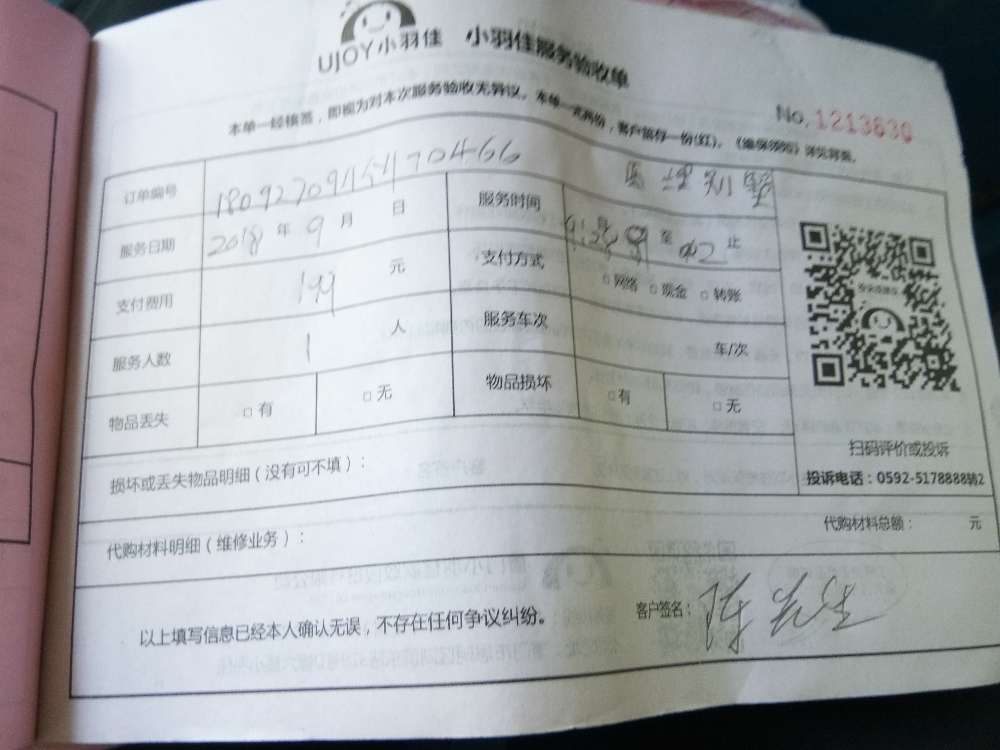 UJOY小羽佳 小羽佳服务验收单
本单一经核签，即视为对本次服务验收无异议。本单一式两份，客户留存一份(红)。《维保须知》详见背面。
No. 1213630
订单编号
服务日期 2018 年 9 月 日 服务时间 至 止
支付费用 199 元 支付方式 □网络 □现金 □转账
服务人数 1 人 服务车次 车/次
物品丢失 □有 □无 物品损坏 □有 □无
扫码评价或投诉
投诉电话：0592-5178888转2
损坏或丢失物品明细（没有可不填）：
代购材料明细（维修业务）： 代购材料总额： 元
以上填写信息已经本人确认无误，不存在任何争议纠纷。 客户签名：陈先生